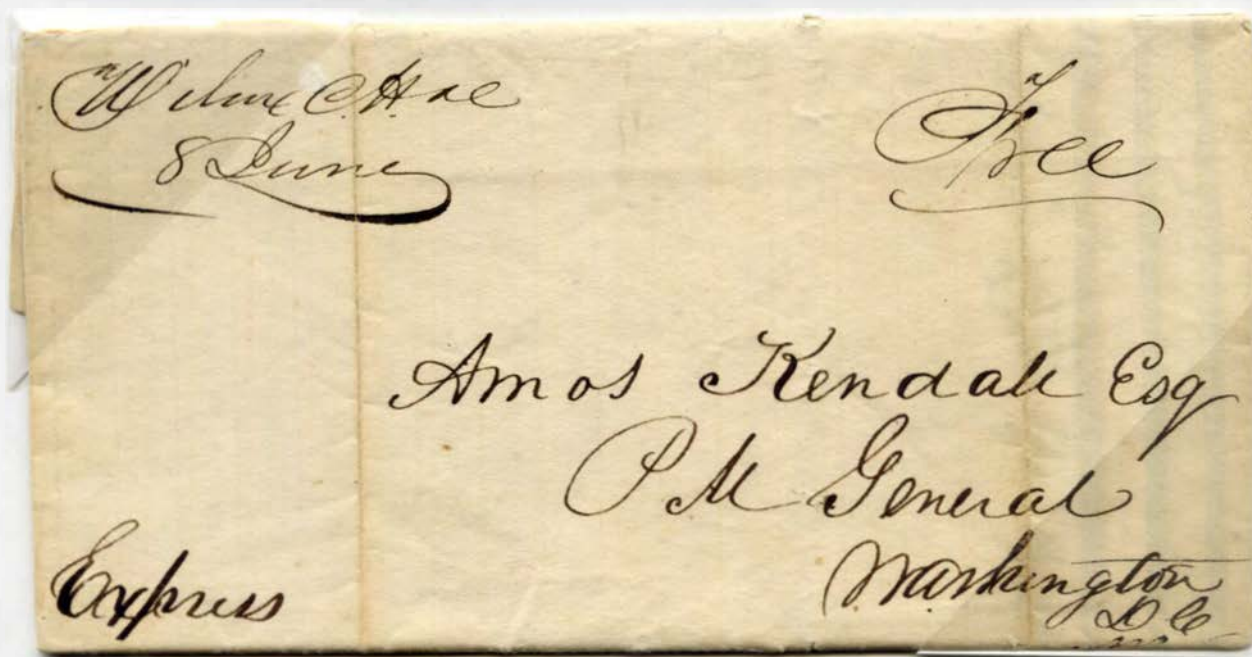 Wilcox C.H. Ala
8 June
Free
Amos Kendall Esq
P M General
Washington
D C
Express